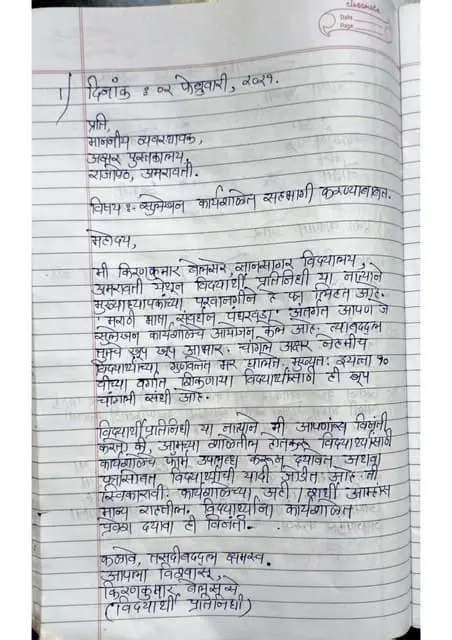 classmate
Date
Page
1) दिनांक : ०२ फेब्रुवारी, २०२१.
प्रति,
माननीय व्यवस्थापक,
अक्षर पुस्तकालय,
राजापेठ, अमरावती.
विषय :- सुलेखन कार्यशाळेत सहभागी करण्याबाबत.
महोदय,
मी किरणकुमार बेलसरे, ज्ञानसागर विद्यालय,
अमरावती येथून विद्यार्थी प्रतिनिधी या नात्याने
मुख्याध्यापकांच्या परवानगीने हे पत्र लिहित आहे.
'मराठी भाषा संवर्धन पंधरवडा' अंतर्गत आपण जे
सुलेखन कार्यशाळेचे आयोजन केले आहे. त्याबद्दल
तुमचे खूप खूप आभार. चांगले अक्षर नेहमीच
विद्यार्थ्याच्या गुणवत्तेत भर घालते. मुख्यतः इयत्ता १०
वीच्या वर्गात शिकणाऱ्या विद्यार्थ्यांसाठी ही खूप
चांगली संधी आहे.
विद्यार्थी प्रतिनिधी या नात्याने मी आपणांस विनंती
करतो की, आमच्या शाळेतील होतकरू विद्यार्थ्यांसाठी
कार्यशाळेचे फॉर्म उपलब्ध करून द्यावेत अथवा
पत्रासोबत विद्यार्थ्यांची यादी जोडीत आहे ती
स्विकारावी. कार्यशाळेच्या अटी / शर्थी आम्हास
मान्य राहतील. विद्यार्थ्यांना कार्यशाळेत
प्रवेश द्यावा ही विनंती.
कळावे, तसदीबद्दल क्षमस्व.
आपला विश्वासू,
किरणकुमार बेलसरे
(विद्यार्थी प्रतिनिधी)